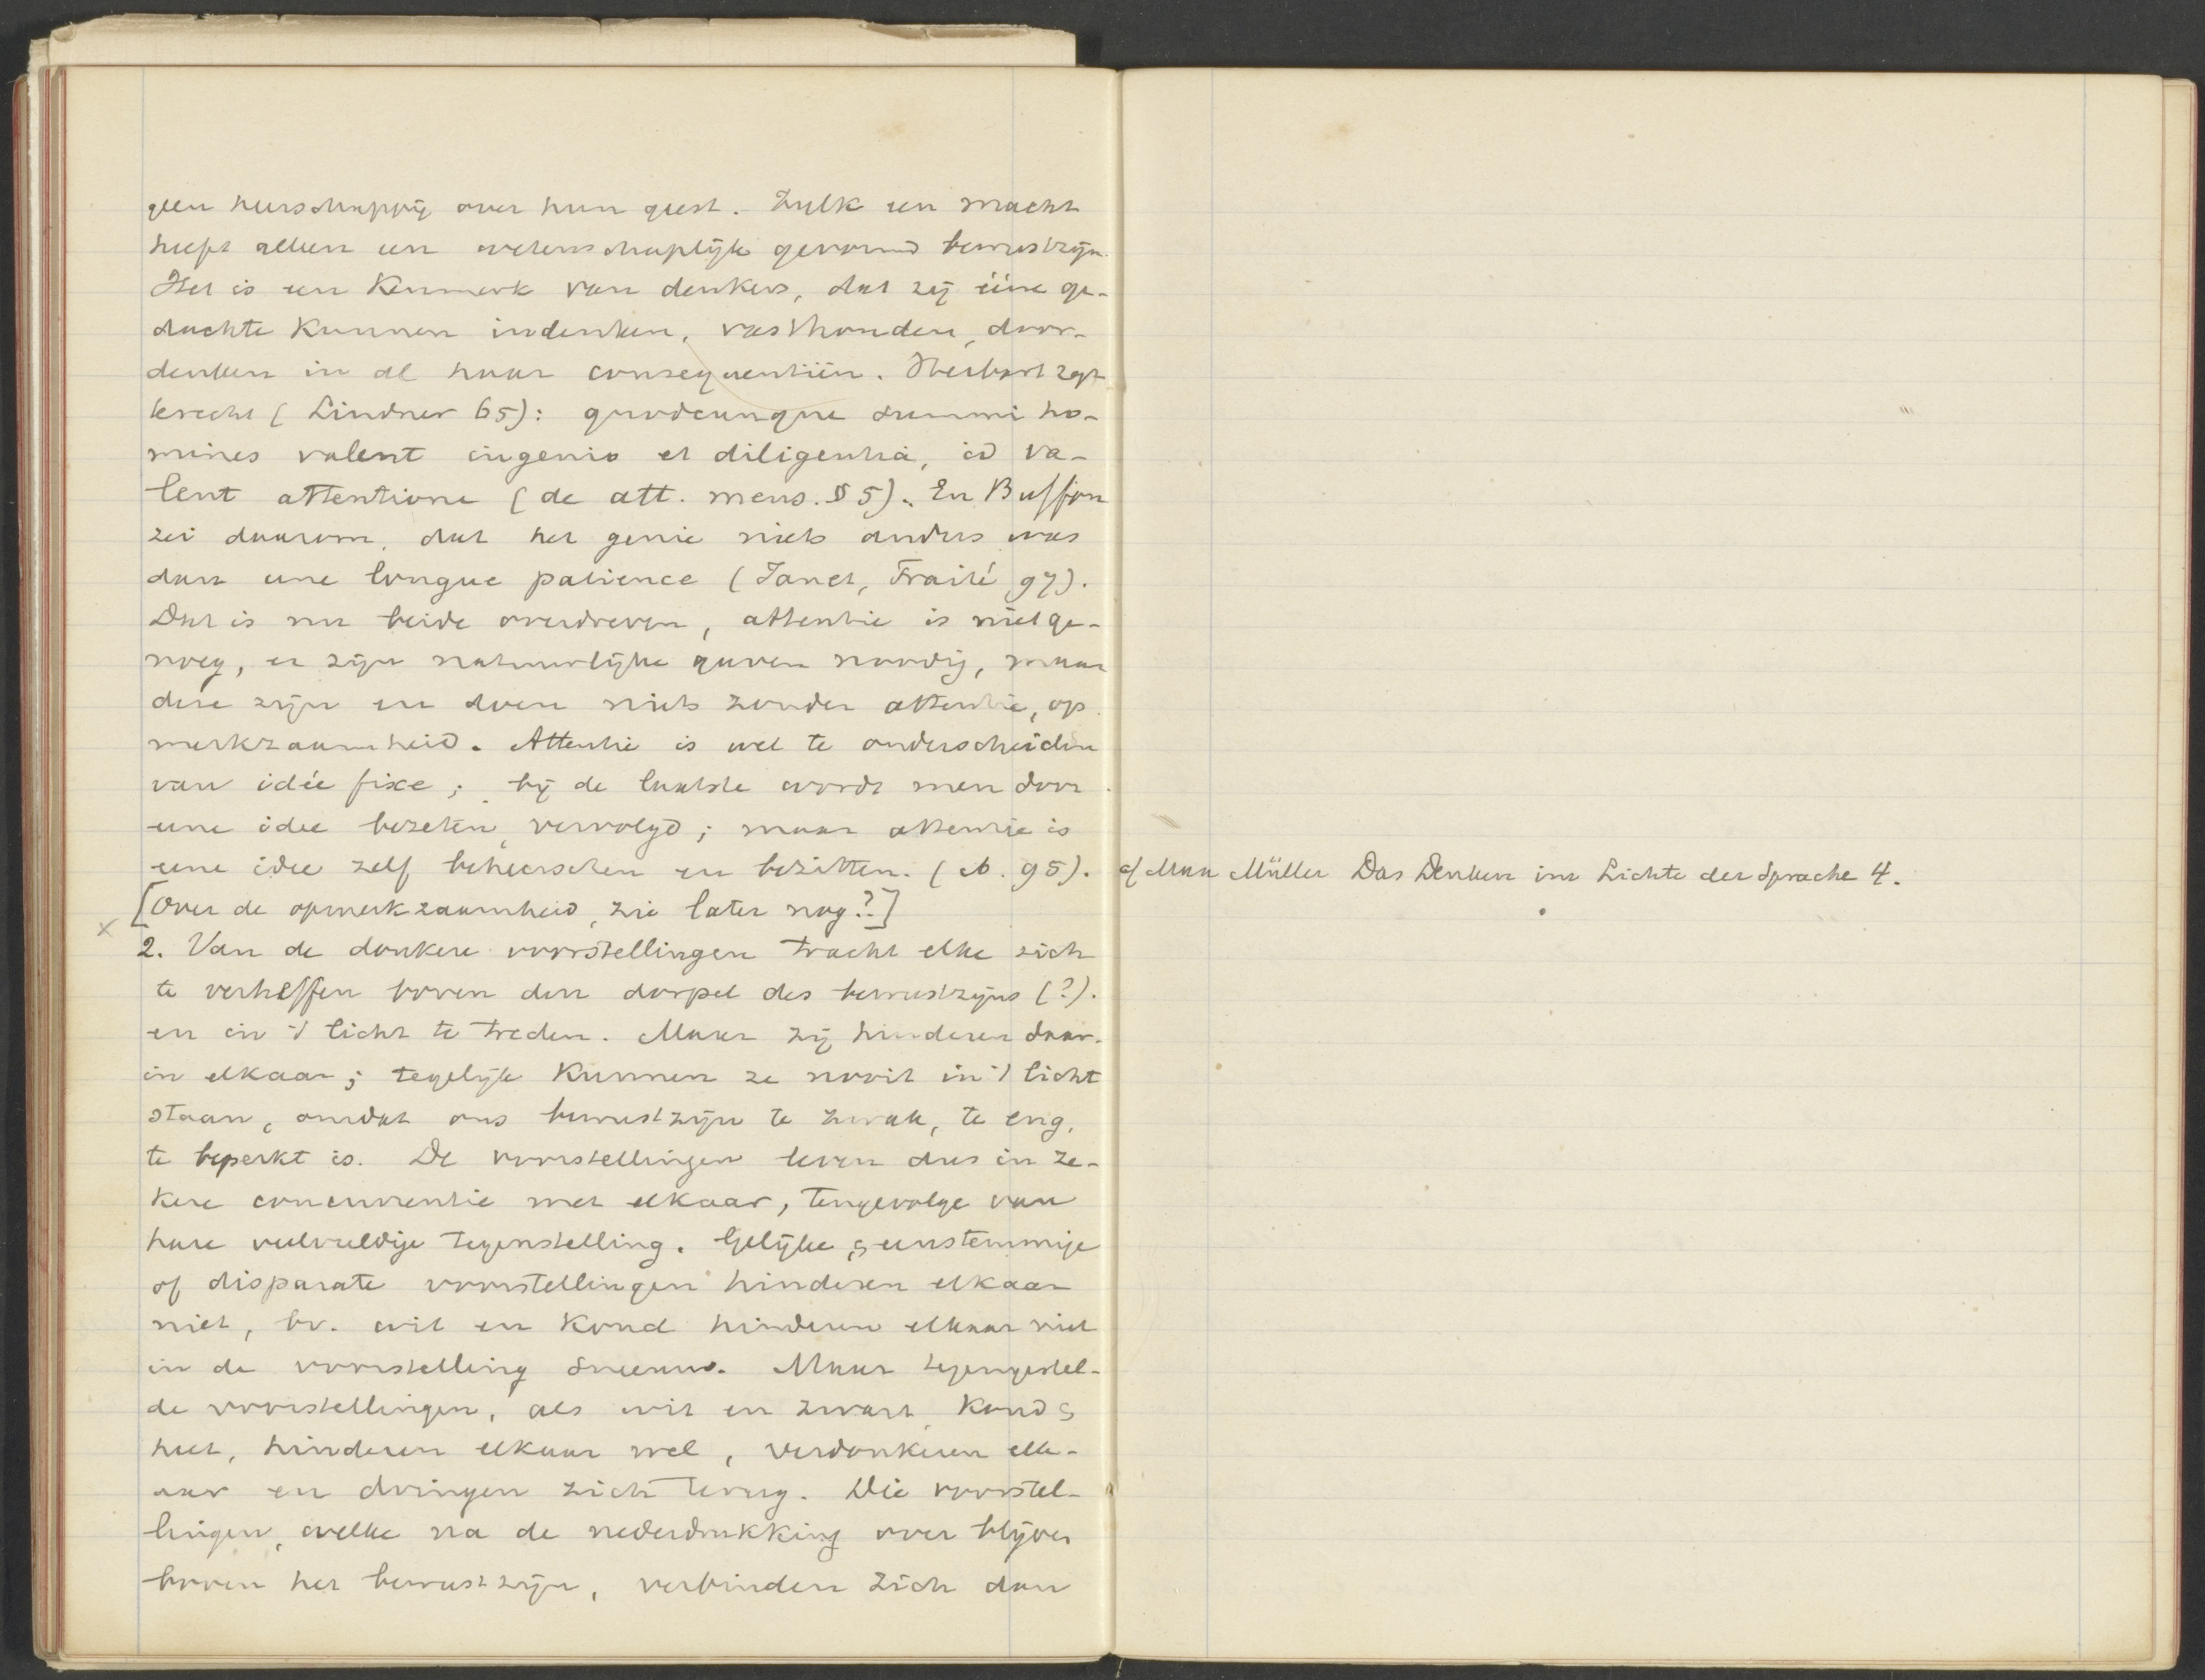 geen heerschappij over hun geest. Zulk een macht
heeft alleen een wetenschaplijk gevormd bewustzijn.
Het is een Kenmerk van denkers, dat zij ééne ge-
dachte Kunnen indenken, vasthouden, door-
denken in al haar consequentiën. Herbart zegt
terecht (Lindner 65): quodcunque summi ho-
mines valent ingenio et diligentia, id va-
lent attentione (de att. mens. § 5). En Buffon
zei daarom, dat het genie niets anders was
dan une longue patience (Janet, Traité 97).
Dat is nu beide overdreven, attentie is niet ge-
noeg, er zijn natuurlijke gaven noodig, maar
deze zijn en doen niets zonder attentie, op
merkzaamheid. Attentie is wel te onderscheiden
van idée fixe; bij de laatste wordt men door
eene idee bezeten, vervolgd; maar attentie is
eene idee zelf beheerschen en bezitten. (ib. 95).
cf Max Müller Das Denken im Lichte der Sprache 4.
[Over de opmerkzaamheid, zie later nog?]
x
2. Van de donkere voorstellingen tracht elke zich
te verheffen boven den dorpel des bewustzijns (?).
en in 't licht te treden. Maar zij hinderen daar-
in elkaar; tegelijk Kunnen ze nooit in 't licht
staan, omdat ons bewustzijn te zwak, te eng,
te beperkt is. De voorstellingen leven dus in ze-
kere concurrentie met elkaar, tengevolge van
hare veelvuldige tegenstelling. Gelijke, eenstemmige
of disparate voorstellingen hinderen elkaar
niet, bv. wit en Koud hinderen elkaar niet
in de voorstelling sneeuw. Maar tegengestel-
de voorstellingen, als wit en zwart, Koud &
heet, hinderen elkaar wel, verdonkeren elk-
aar en dringen zich terug. Die voorstel-
lingen, welke na de nederdrukking over blijven
boven het bewustzijn, verbinden zich dan